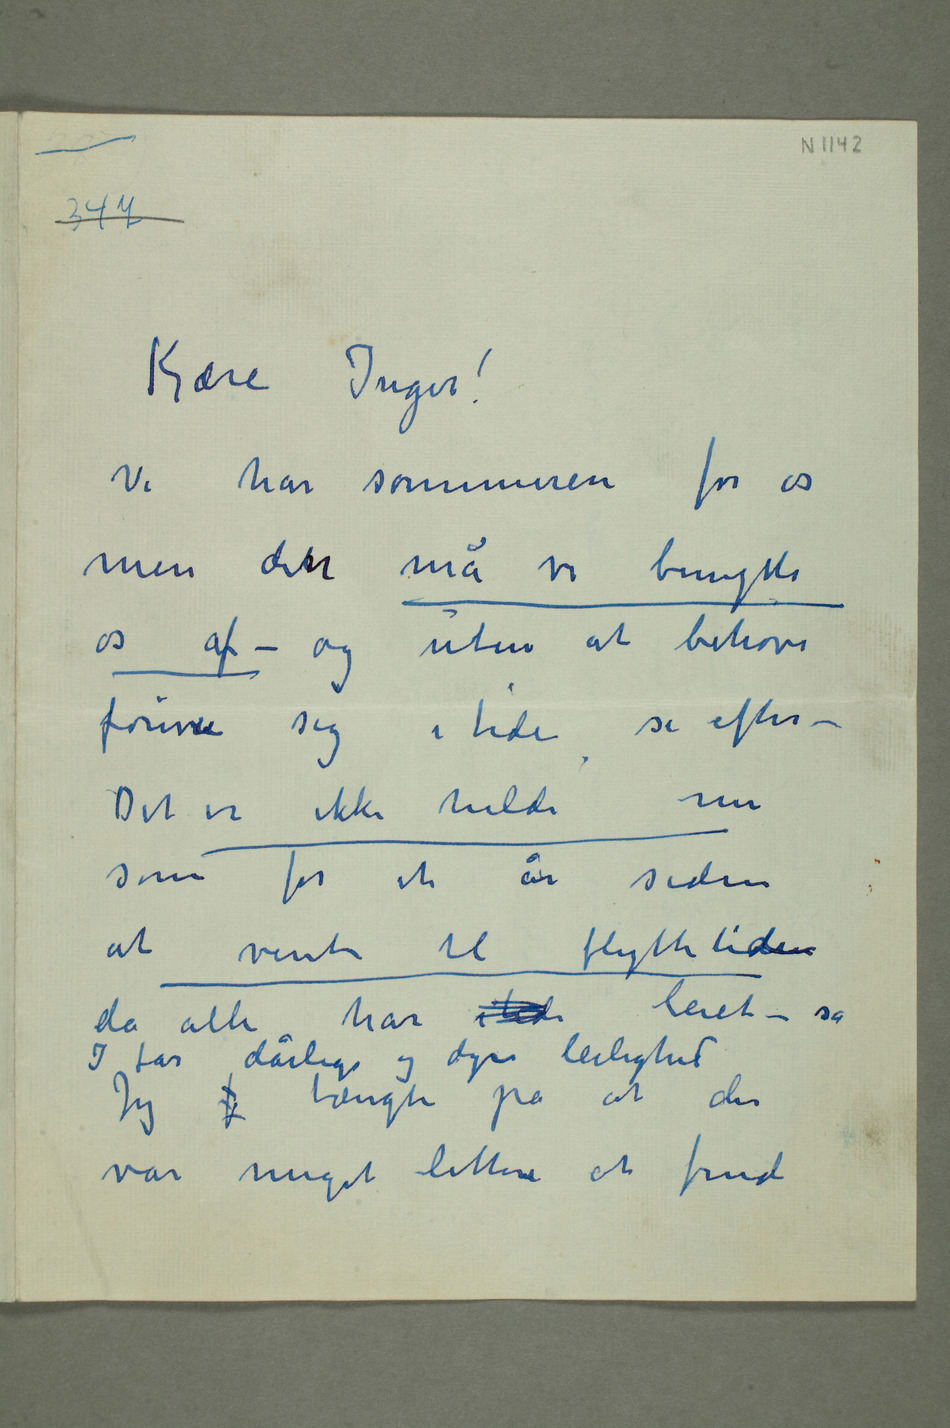 N 1142
347
Kjære Inger!
Vi har sommeren for os
men den må vi benytte
os af – og uten at behøve
forivre sig i tide se efter –
Det er ikke heldi nu
som for et år siden
at vente til flyttetiden
da alle har leiet – så
I får dårlige og dyre leilighed
Jeg tængte på at der
var meget lettere at find